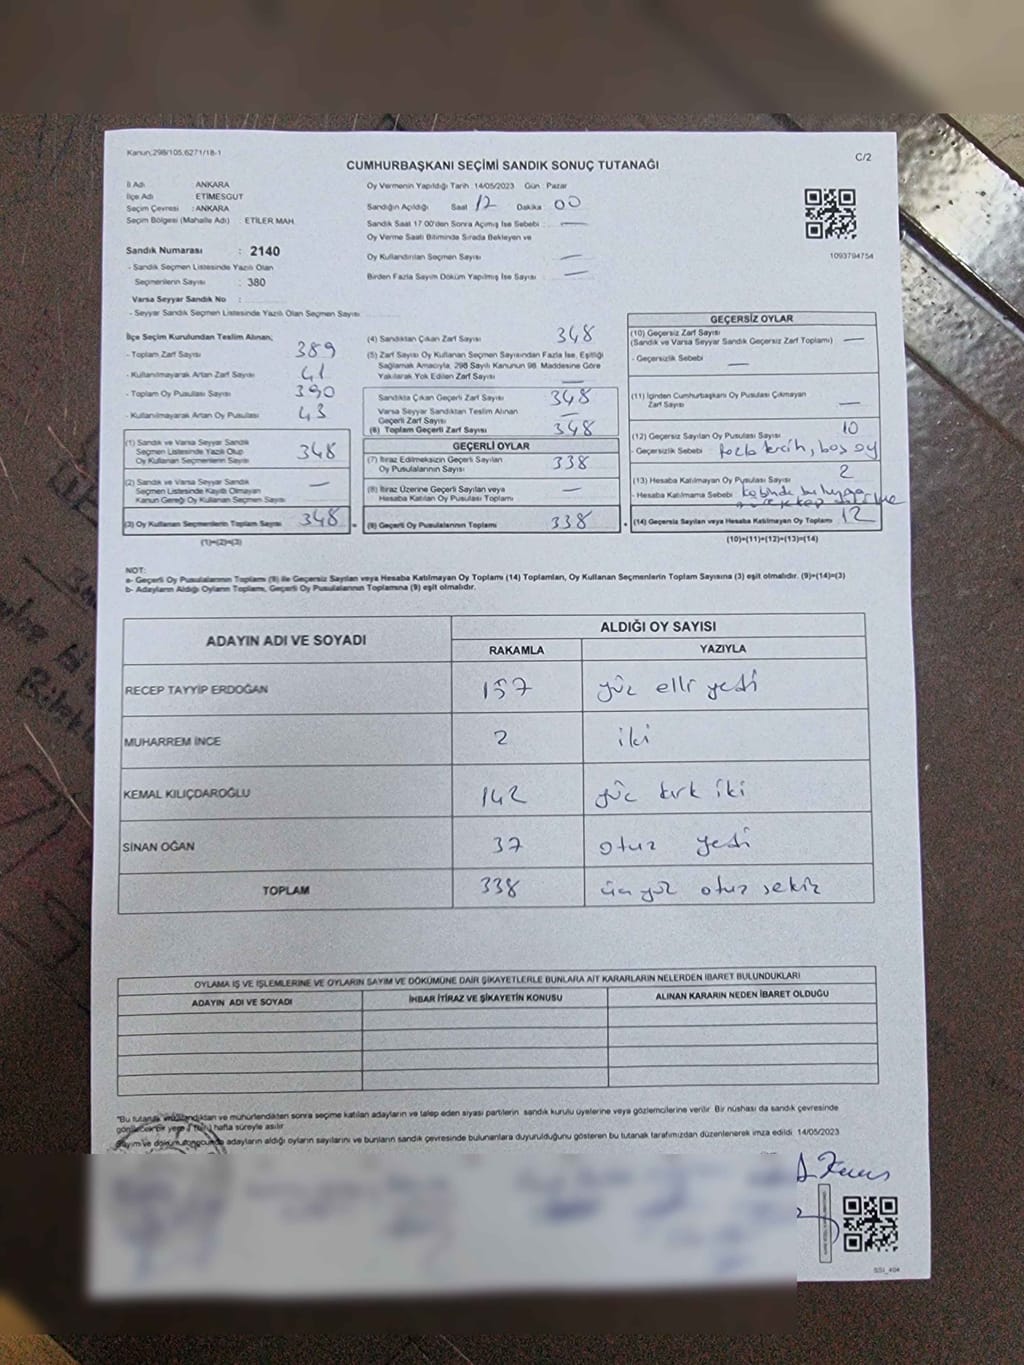 Kanun:298/105,6271/18-1
CUMHURBAŞKANI SEÇİMİ SANDIK SONUÇ TUTANAĞI
C/2
İl Adı ANKARA
İlçe Adı ETİMESGUT
Seçim Çevresi : ANKARA
Seçim Bölgesi (Mahalle Adı) : ETİLER MAH.
Sandık Numarası : 2140
- Sandık Seçmen Listesinde Yazılı Olan
Seçmenlerin Sayısı : 380
Varsa Seyyar Sandık No :
- Seyyar Sandık Seçmen Listesinde Yazılı Olan Seçmen Sayısı
Oy Vermenin Yapıldığı Tarih : 14/05/2023 Gün : Pazar
Sandığın Açıldığı Saat 17 Dakika 00
Sandık Saat 17 00'den Sonra Açılmış İse Sebebi : —
Oy Verme Saati Bitiminde Sırada Bekleyen ve
Oy Kullandırılan Seçmen Sayısı —
Birden Fazla Sayım Döküm Yapılmış İse Sayısı —
1093794754
İlçe Seçim Kurulundan Teslim Alınan;
- Toplam Zarf Sayısı 389
- Kullanılmayarak Artan Zarf Sayısı 41
- Toplam Oy Pusulası Sayısı 390
- Kullanılmayarak Artan Oy Pusulası 43
(1) Sandık ve Varsa Seyyar Sandık
Seçmen Listesinde Yazılı Olup
Oy Kullanan Seçmenlerin Sayısı 348
(2) Sandık ve Varsa Seyyar Sandık
Seçmen Listesinde Kayıtlı Olmayan
Kanun Gereği Oy Kullanan Seçmen Sayısı —
(3) Oy Kullanan Seçmenlerin Toplam Sayısı 348
(1)+(2)=(3)
(4) Sandıktan Çıkan Zarf Sayısı 348
(5) Zarf Sayısı Oy Kullanan Seçmen Sayısından Fazla İse, Eşitliği
Sağlamak Amacıyla, 298 Sayılı Kanunun 98. Maddesine Göre
Yakılarak Yok Edilen Zarf Sayısı —
Sandıkta Çıkan Geçerli Zarf Sayısı 348
Varsa Seyyar Sandıktan Teslim Alınan
Geçerli Zarf Sayısı —
(6) Toplam Geçerli Zarf Sayısı 348
GEÇERLİ OYLAR
(7) İtiraz Edilmeksizin Geçerli Sayılan
Oy Pusulalarının Sayısı 338
(8) İtiraz Üzerine Geçerli Sayılan veya
Hesaba Katılan Oy Pusulası Toplamı —
(9) Geçerli Oy Pusulalarının Toplamı 338
GEÇERSİZ OYLAR
(10) Geçersiz Zarf Sayısı
(Sandık ve Varsa Seyyar Sandık Geçersiz Zarf Toplamı) —
- Geçersizlik Sebebi —
(11) İçinden Cumhurbaşkanı Oy Pusulası Çıkmayan
Zarf Sayısı —
(12) Geçersiz Sayılan Oy Pusulası Sayısı 10
- Geçersizlik Sebebi fazla tercih, boş oy
(13) Hesaba Katılmayan Oy Pusulası Sayısı 2
- Hesaba Katılmama Sebebi
(14) Geçersiz Sayılan veya Hesaba Katılmayan Oy Toplamı 12
(10)+(11)+(12)+(13)=(14)
NOT:
a- Geçerli Oy Pusulalarının Toplamı (9) ile Geçersiz Sayılan veya Hesaba Katılmayan Oy Toplamı (14) Toplamları, Oy Kullanan Seçmenlerin Toplam Sayısına (3) eşit olmalıdır. (9)+(14)=(3)
b- Adayların Aldığı Oyların Toplamı, Geçerli Oy Pusulalarının Toplamına (9) eşit olmalıdır.
ADAYIN ADI VE SOYADI ALDIĞI OY SAYISI
RAKAMLA YAZIYLA
RECEP TAYYİP ERDOĞAN 157 yüz elli yedi
MUHARREM İNCE 2 iki
KEMAL KILIÇDAROĞLU 142 yüz kırk iki
SİNAN OĞAN 37 otuz yedi
TOPLAM 338 üç yüz otuz sekiz
OYLAMA İŞ VE İŞLEMLERİNE VE OYLARIN SAYIM VE DÖKÜMÜNE DAİR ŞİKAYETLERLE BUNLARA AİT KARARLARIN NELERDEN İBARET BULUNDUKLARI
ADAYIN ADI VE SOYADI İHBAR İTİRAZ VE ŞİKAYETİN KONUSU ALINAN KARARIN NEDEN İBARET OLDUĞU
"Bu tutanak imzalandıktan ve mühürlendikten sonra seçime katılan adayların ve talep eden siyasi partilerin sandık kurulu üyelerine veya gözlemcilerine verilir. Bir nüshası da sandık çevresinde
görülecek bir yere 1 (bir) hafta süreyle asılır
Sayım ve döküm sonucunda adayların aldığı oyların sayılarını ve bunların sandık çevresinde bulunanlara duyurulduğunu gösteren bu tutanak tarafımızdan düzenlenerek imza edildi. 14/05/2023
SSI_404